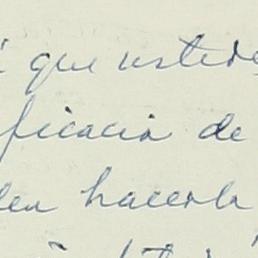 que ustede
ficacia de
den hacerla